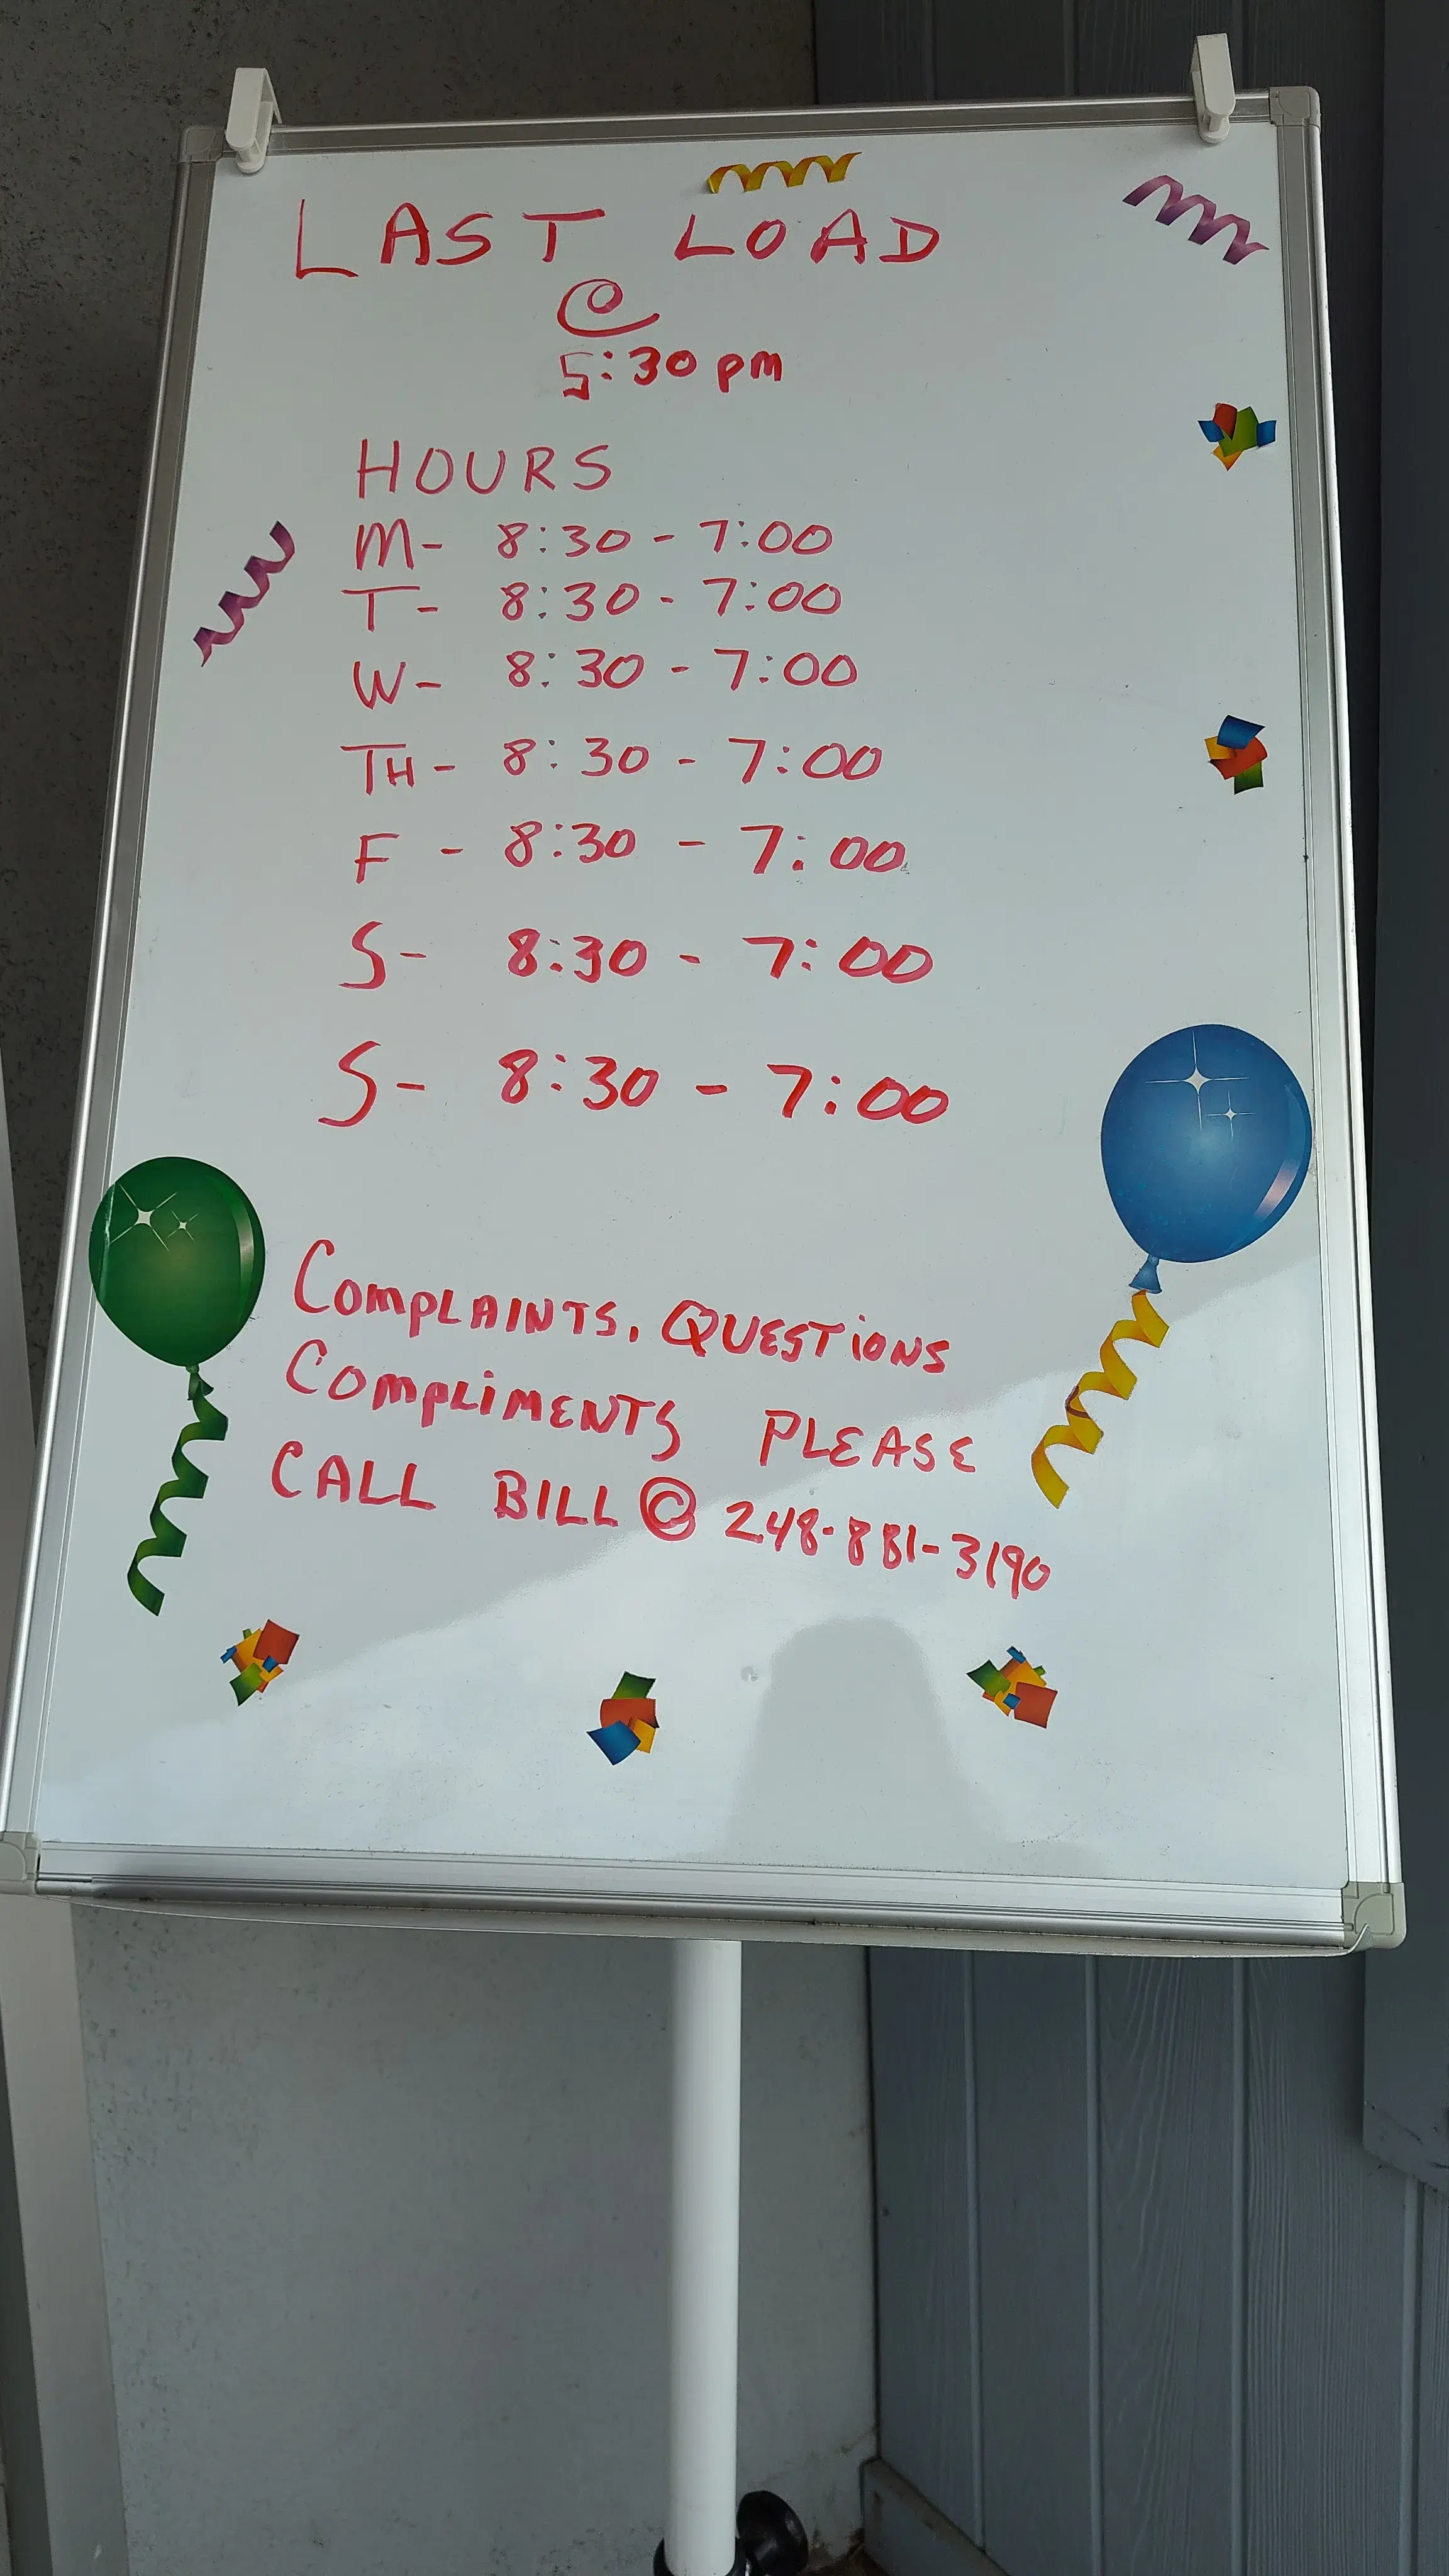 LAST LOAD
@
5:30 pm
HOURS
M- 8:30 - 7:00
T- 8:30 - 7:00
W- 8:30 - 7:00
TH- 8:30 - 7:00
F - 8:30 - 7:00
S- 8:30 - 7:00
S- 8:30 - 7:00
COMPLAINTS, QUESTIONS
COMPLIMENTS PLEASE
CALL BILL @ 248-881-3190